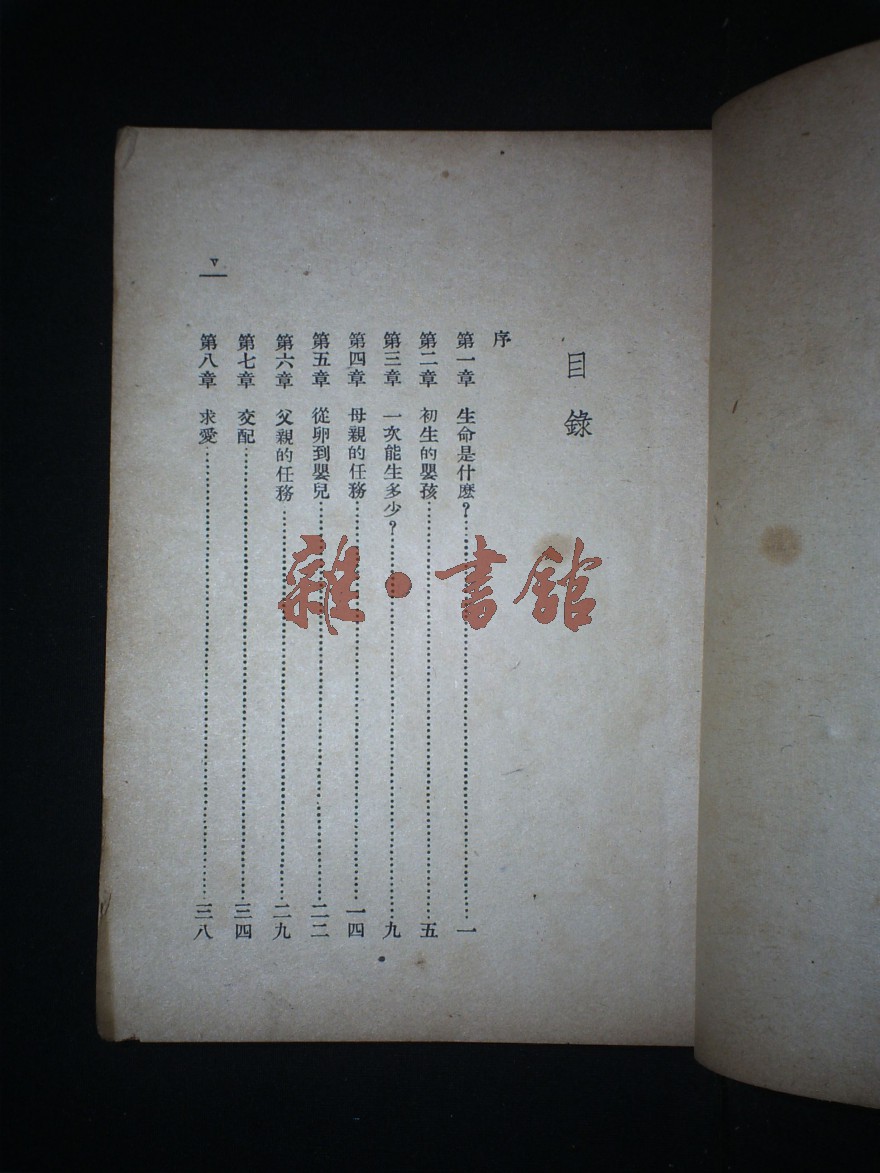 目錄
序
第一章 生命是什麽？……一
第二章 初生的嬰孩……五
第三章 一次能生多少？……九
第四章 母親的任務……一四
第五章 從卵到嬰兒……二二
第六章 父親的任務……二九
第七章 交配……三四
第八章 求愛……三八
v
雜·書館